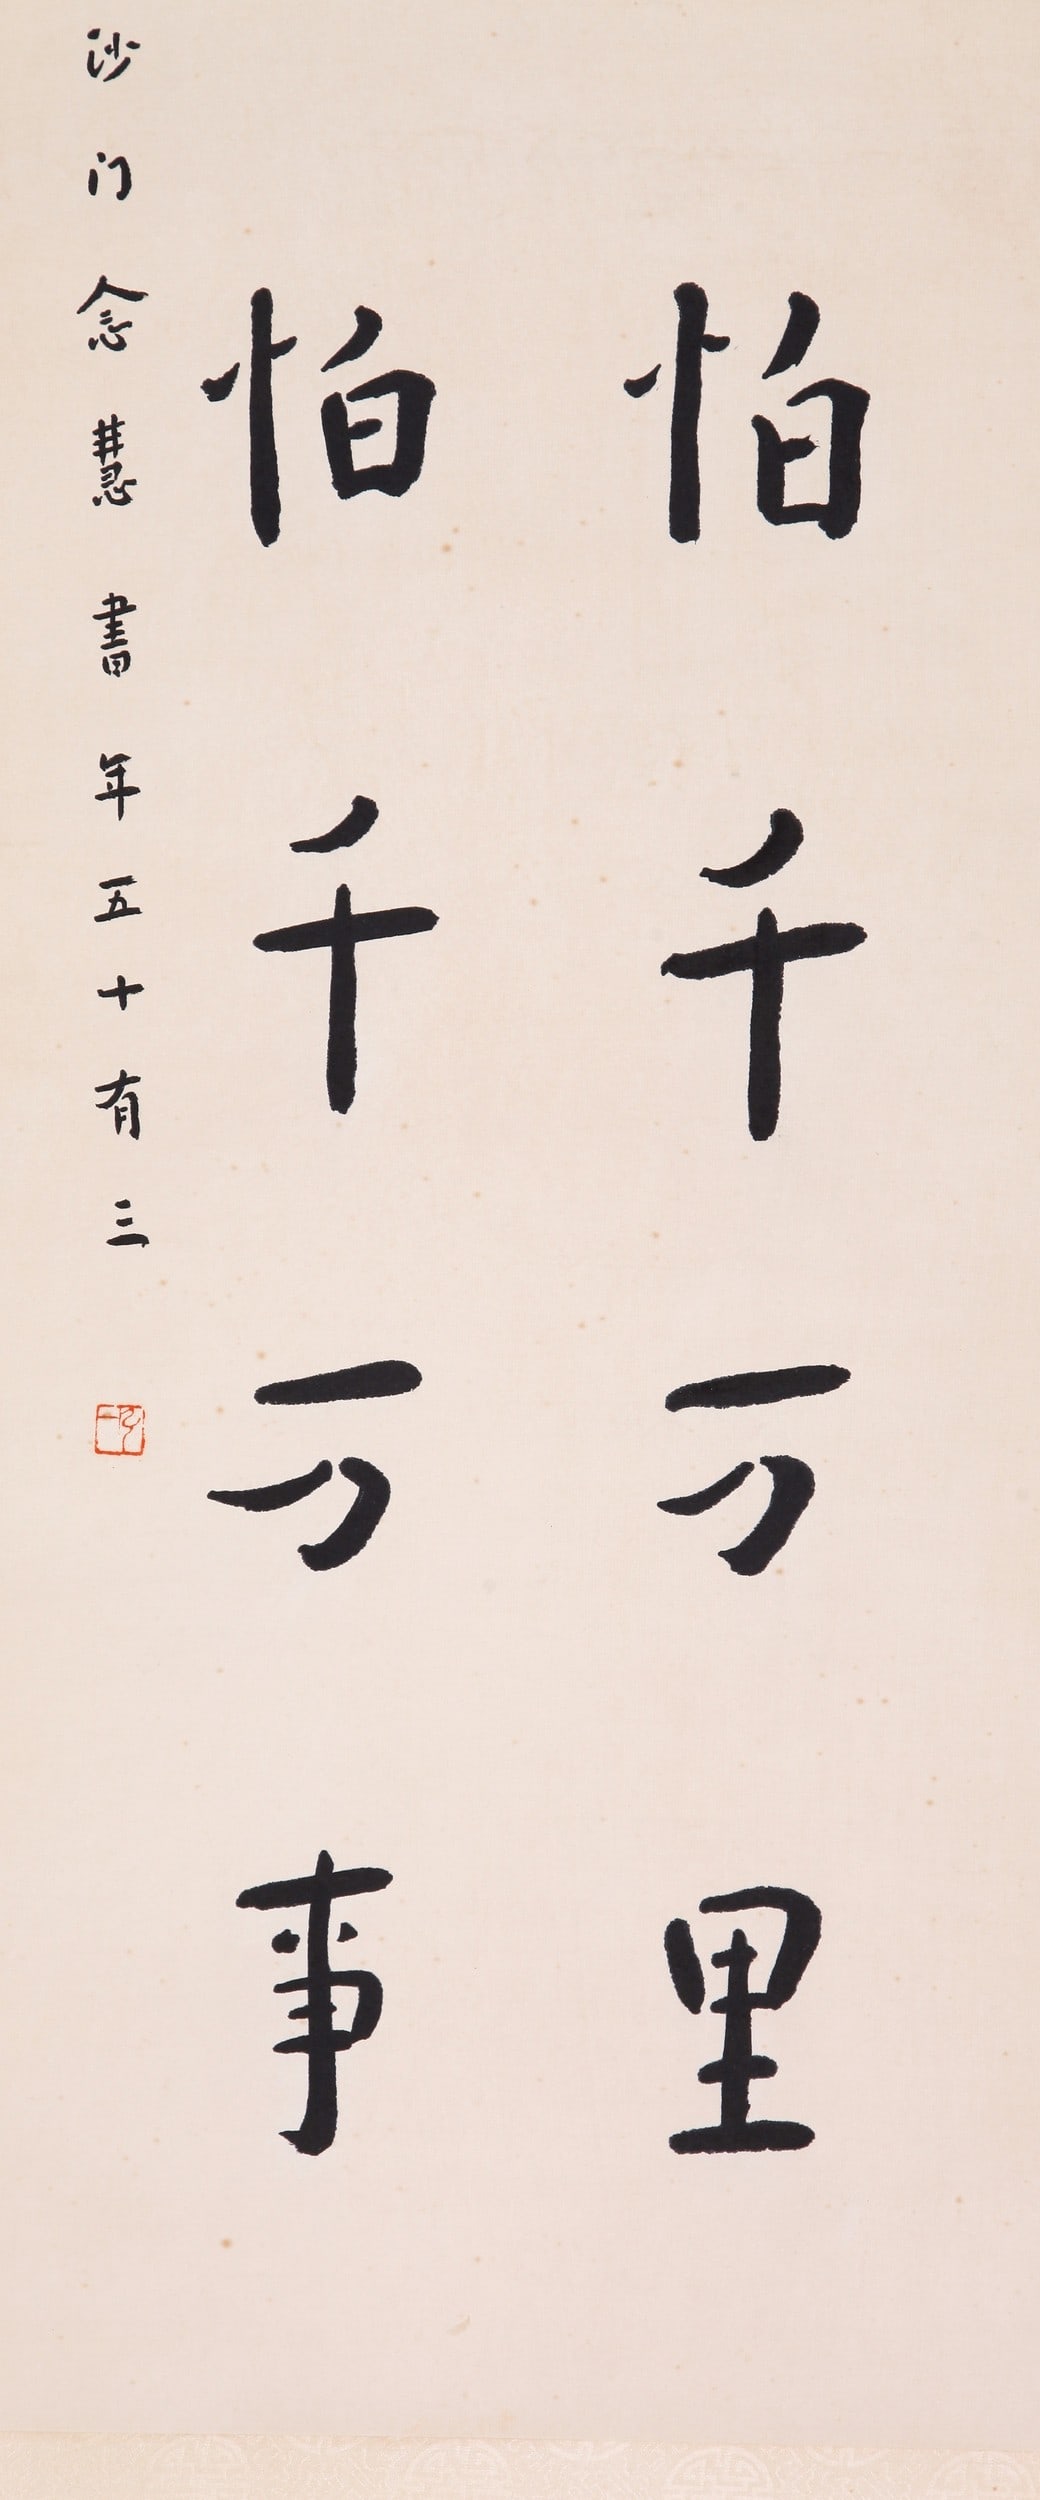 怕千万里
怕千万事
沙门念慧書年五十有三